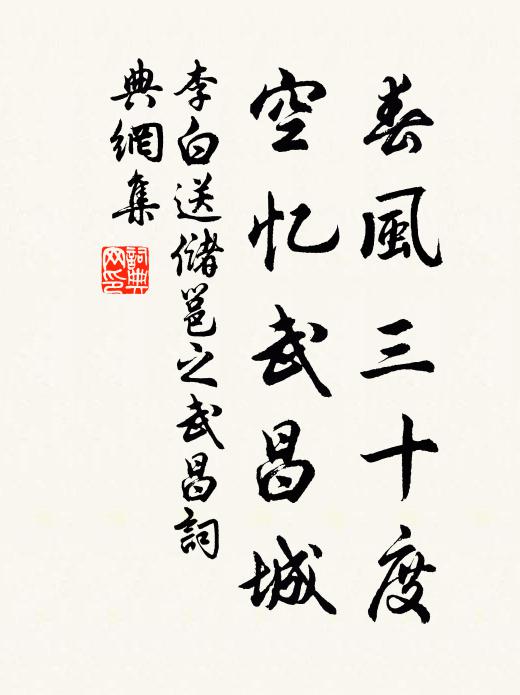 春風三十度
空忆武昌城
李白送儲邕之武昌詞
典網集
詞典
网印